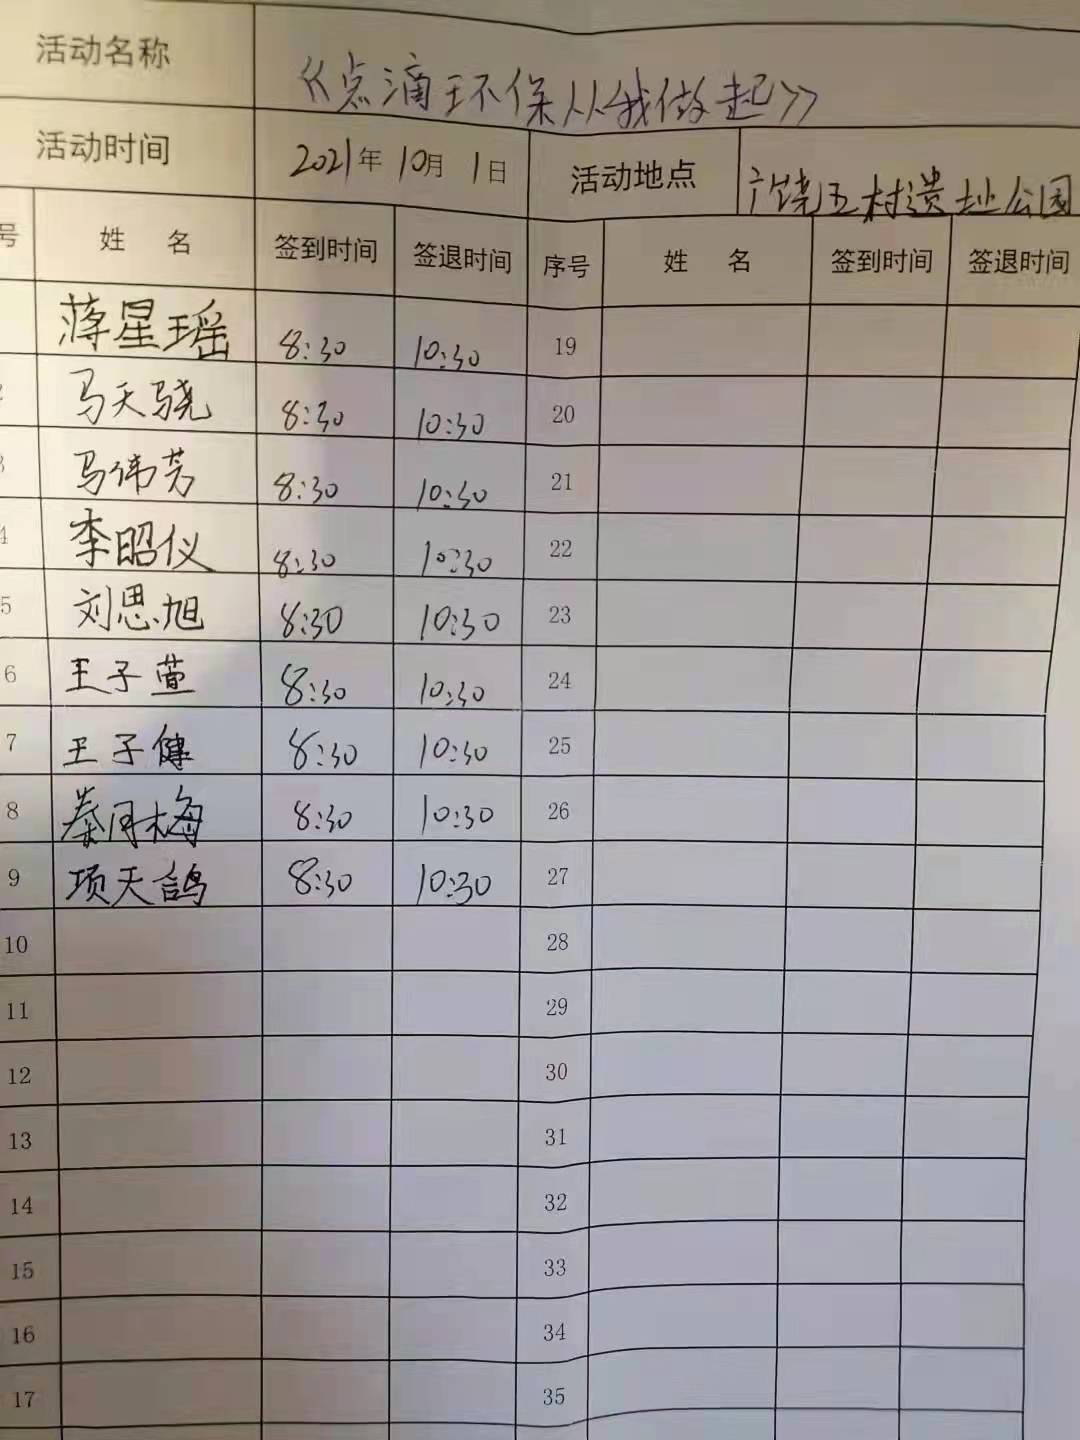 活动名称 《点滴环保从我做起》
活动时间 2021年10月1日 活动地点 广饶五村遗址公园
号 姓名 签到时间 签退时间 序号 姓名 签到时间 签退时间
蒋星瑶 8:30 10:30 19
2 马天骁 8:30 10:30 20
3 马伟芳 8:30 10:30 21
4 李昭仪 8:30 10:30 22
5 刘思旭 8:30 10:30 23
6 王子萱 8:30 10:30 24
7 王子健 8:30 10:30 25
8 秦月梅 8:30 10:30 26
9 项天鸽 8:30 10:30 27
10 28
11 29
12 30
13 31
14 32
15 33
16 34
17 35